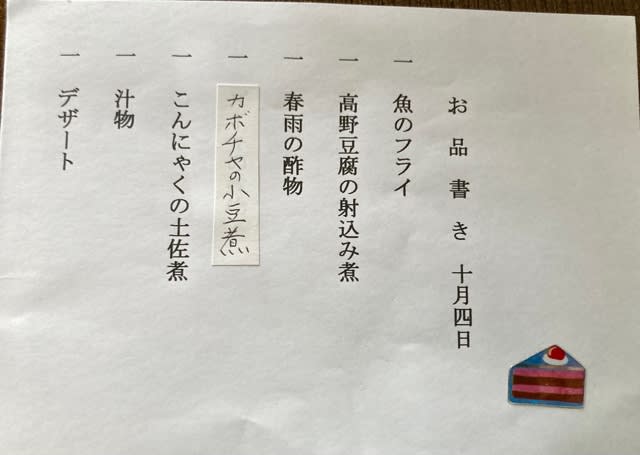 お品書き 十月四日
一 魚のフライ
一 高野豆腐の射込み煮
一 春雨の酢物
一 カボチャの小豆煮
一 こんにゃくの土佐煮
一 汁物
一 デザート